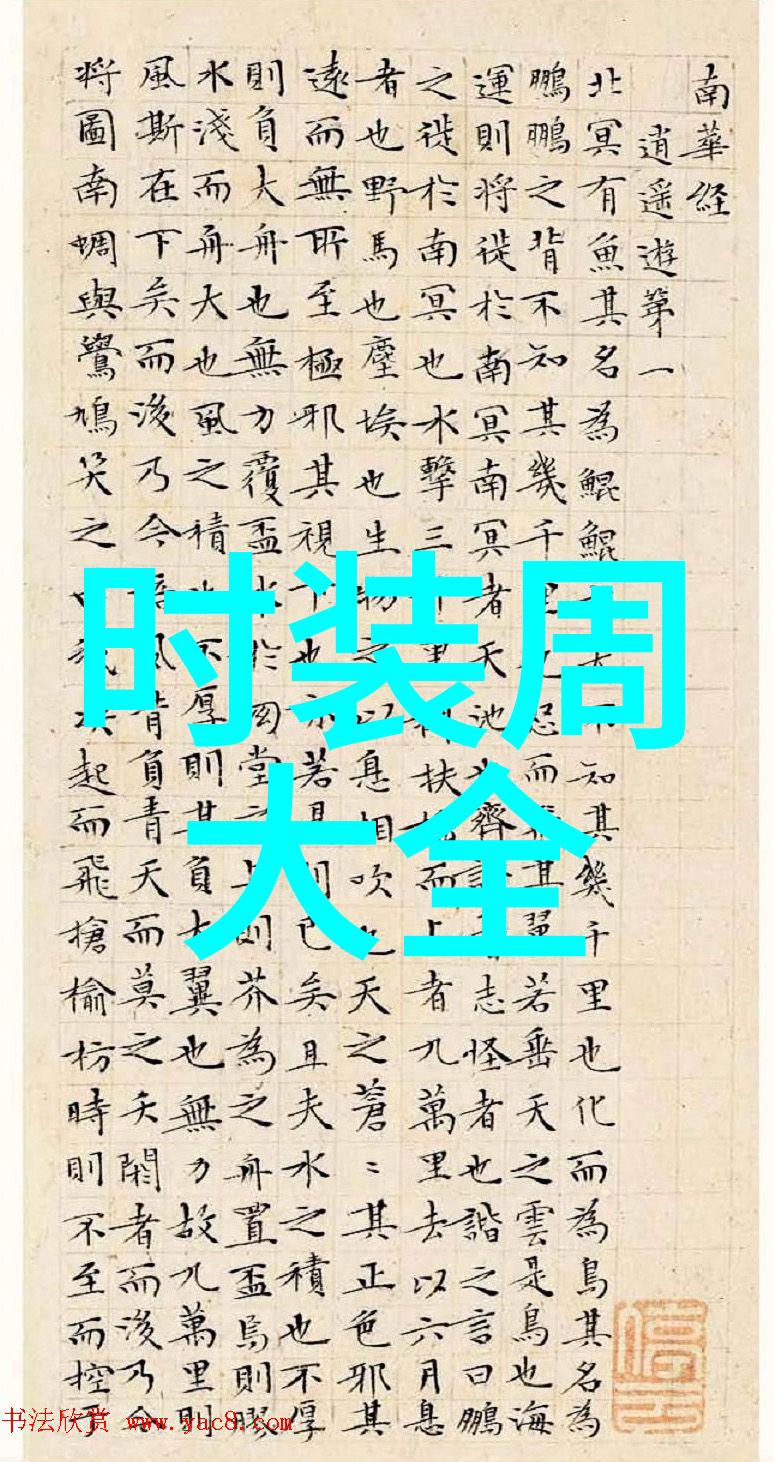 南華経
逍遥遊第一
北冥有魚其名為鯤鯤大不知其幾千里也化而為鳥其名為
鵬鵬之背不知其幾千里也怒而飛其翼若垂天之雲是鳥也海
運則將徙於南冥南冥者天池也齊諧者志怪者也諧之言曰鵬
之徙於南冥也水擊三千里摶扶搖而上者九萬里去以六月息
者也野馬也塵埃也生物之以息相吹也天之蒼〻其正色邪其
遠而無所至極邪其視下也亦若是則已矣且夫水之積也不厚
則負大舟也無力覆盃水於坳堂之上則芥為之舟置盃焉則膠
水淺而舟大也風之積也不厚則其負大翼也無力故九萬里則
風斯在下矣而後乃今培風背負青天而莫之夭閼者而後乃今
將圖南蜩與鷽鳩笑之曰我決起而飛搶榆枋時則不至而控於
时装周
大全
书法欣赏 www.yac8.com